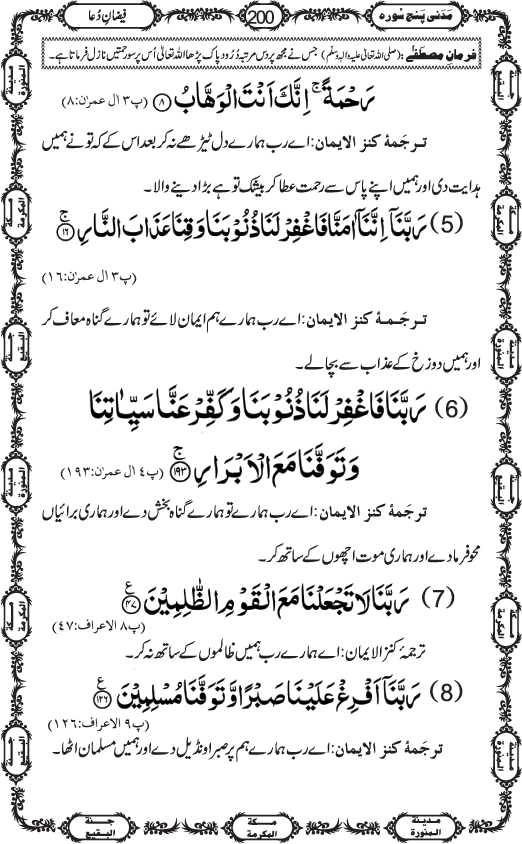 مَدَنی پنج سورہ 200 فیضانِ دُعا
فرمانِ مصطفٰے: (صلی اللہ تعالیٰ علیہ والہ وسلّم) جس نے مجھ پر دس مرتبہ دُرُود پاک پڑھا اللہ تعالیٰ اُس پر سو رحمتیں نازل فرماتا ہے۔
رَحْمَةً ۚ اِنَّكَ اَنْتَ الْوَهَّابُ ﴿۸﴾ (پ۳ ال عمرٰن:۸)
ترجَمۂ کنز الایمان: اے رب ہمارے دل ٹیڑھے نہ کر بعد اس کے کہ تو نے ہمیں
ہدایت دی اور ہمیں اپنے پاس سے رحمت عطا کر بیشک تو ہے بڑا دینے والا۔
(5) رَبَّنَاۤ اِنَّنَاۤ اٰمَنَّا فَاغْفِرْ لَنَا ذُنُوْبَنَا وَ قِنَا عَذَابَ النَّارِ ﴿۱۶﴾ۚ
(پ۳ ال عمرٰن:۱۶)
ترجَمۂ کنز الایمان: اے رب ہمارے ہم ایمان لائے تو ہمارے گناہ معاف کر
اور ہمیں دوزخ کے عذاب سے بچالے۔
(6) رَبَّنَا فَاغْفِرْ لَنَا ذُنُوْبَنَا وَ كَفِّرْ عَنَّا سَيِّاٰتِنَا
وَ تَوَفَّنَا مَعَ الْاَبْرَارِ ﴿۱۹۳﴾ۚ (پ٤ ال عمرٰن:۱۹۳)
ترجَمۂ کنز الایمان: اے رب ہمارے تو ہمارے گناہ بخش دے اور ہماری برائیاں
محو فرما دے اور ہماری موت اچھوں کے ساتھ کر۔
(7) رَبَّنَا لَا تَجْعَلْنَا مَعَ الْقَوْمِ الظّٰلِمِيْنَ ﴿۴۷﴾ع
(پ۸ الاعراف:۴۷)
ترجمۂ کنز الایمان: اے ہمارے رب ہمیں ظالموں کے ساتھ نہ کر۔
(8) رَبَّنَاۤ اَفْرِغْ عَلَيْنَا صَبْرًا وَّ تَوَفَّنَا مُسْلِمِيْنَ ﴿۱۲۶﴾ع
(پ۹ الاعراف:۱۲۶)
ترجَمۂ کنز الایمان: اے رب ہمارے ہم پر صبر اونڈیل دے اور ہمیں مسلمان اٹھا۔
مدینة المنورة
مکة المکرمة
جنة البقیع
مدینة المنورة
مکة المکرمة
جنة البقیع
جنة البقیع
مکة المکرمة
مدینة المنورة
جنة البقیع
مکة المکرمة
مدینة المنورة
مدینة المنورة
مکة المکرمة
جنة البقیع